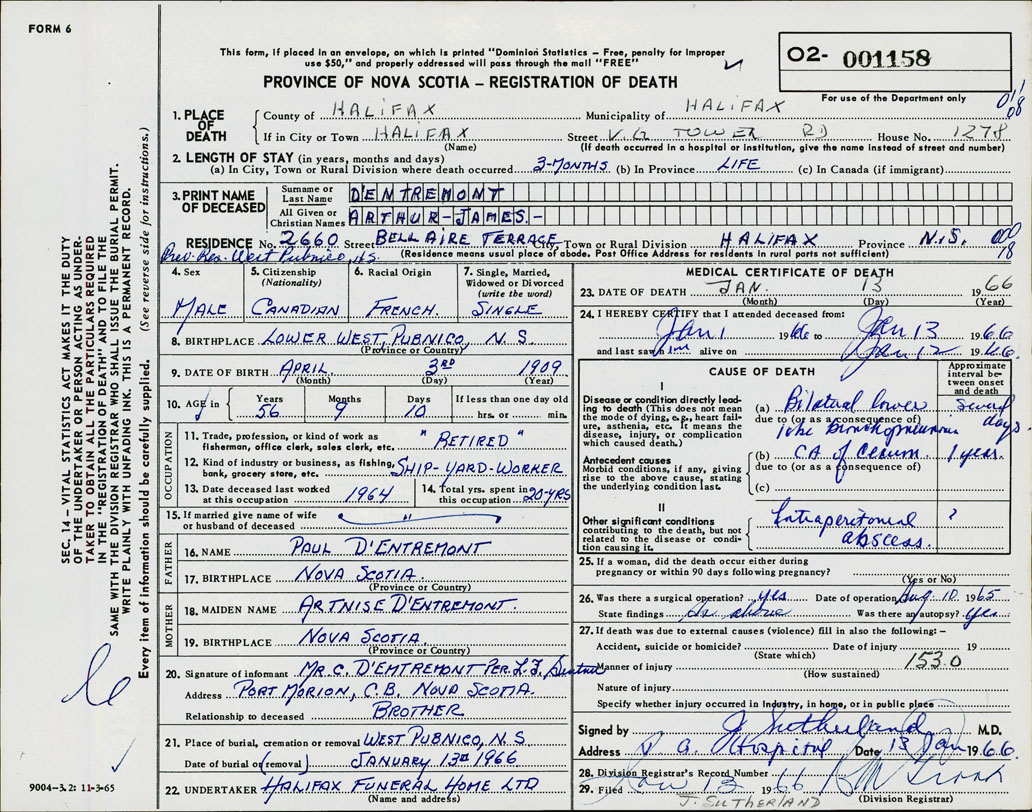 FORM 6
This form, if placed in an envelope, on which is printed "Dominion Statistics – Free, penalty for improper
use $50," and properly addressed will pass through the mail "FREE"
02- 001158
For use of the Department only
PROVINCE OF NOVA SCOTIA – REGISTRATION OF DEATH
011
08
1. PLACE OF DEATH
County of HALIFAX Municipality of HALIFAX
If in City or Town HALIFAX Street V.G. TOWER RD House No. 1278
(Name) (If death occurred in a hospital or institution, give the name instead of street and number)
2. LENGTH OF STAY (in years, months and days)
(a) In City, Town or Rural Division where death occurred 3-MONTHS (b) In Province LIFE (c) In Canada (if immigrant)
3. PRINT NAME OF DECEASED
Surname or Last Name D'ENTREMONT
All Given or Christian Names ARTHUR-JAMES.-
RESIDENCE No. 2660 Street BELL AIRE TERRACE City, Town or Rural Division HALIFAX Province N.S.
Prev. Res. West Pubnico, N.S. (Residence means usual place of abode. Post Office Address for residents in rural parts not sufficient)
18
4. Sex MALE
5. Citizenship (Nationality) CANADIAN
6. Racial Origin FRENCH.
7. Single, Married, Widowed or Divorced (write the word) SINGLE
8. BIRTHPLACE LOWER WEST, PUBNICO, N. S.
(Province or Country)
9. DATE OF BIRTH APRIL 3RD 1909
(Month) (Day) (Year)
10. AGE in Years 56 Months 9 Days 10 If less than one day old hrs. or min.
OCCUPATION
11. Trade, profession, or kind of work as fisherman, office clerk, sales clerk, etc. "RETIRED"
12. Kind of industry or business, as fishing, bank, grocery store, etc. SHIP-YARD-WORKER
13. Date deceased last worked at this occupation 1964
14. Total yrs. spent in this occupation 20-YRS
15. If married give name of wife or husband of deceased "
FATHER
16. NAME PAUL D'ENTREMONT
17. BIRTHPLACE NOVA SCOTIA.
(Province or Country)
MOTHER
18. MAIDEN NAME ARTNISE D'ENTREMONT.
19. BIRTHPLACE NOVA SCOTIA.
(Province or Country)
20. Signature of informant MR. C. D'EMTREMONT PER. L.J.
Address PORT MORION, C.B. NOVA SCOTIA.
Relationship to deceased BROTHER
21. Place of burial, cremation or removal WEST PUBNICO, N.S
Date of burial or (removal) JANUARY 13TH 1966
22. UNDERTAKER HALIFAX FUNERAL HOME LTD
(Name and address)
MEDICAL CERTIFICATE OF DEATH
23. DATE OF DEATH JAN. 13 1966
(Month) (Day) (Year)
24. I HEREBY CERTIFY that I attended deceased from:
Jan 1 1966 to Jan 13 1966
and last saw him alive on Jan 12 1966
CAUSE OF DEATH
Approximate interval between onset and death
I
Disease or condition directly leading to death (This does not mean the mode of dying, e.g., heart failure, asthenia, etc. It means the disease, injury, or complication which caused death.)
(a) Bilateral lower several days
due to (or as a consequence of)
lobe bronchopneumonia
Antecedent causes
Morbid conditions, if any, giving rise to the above cause, stating the underlying condition last.
(b) CA of Cecum. 1 year.
due to (or as a consequence of)
(c)
II
Other significant conditions contributing to the death, but not related to the disease or condition causing it.
Intraperitoneal ?
abscess.
25. If a woman, did the death occur either during
pregnancy or within 90 days following pregnancy?
(Yes or No)
26. Was there a surgical operation? yes Date of operation Aug 10 1965
State findings As above Was there an autopsy? yes
27. If death was due to external causes (violence) fill in also the following: –
Accident, suicide or homicide? Date of injury 19
(State which)
Manner of injury 153.0
(How sustained)
Nature of injury
Specify whether injury occurred in industry, in home, or in public place
Signed by J Sutherland M.D.
Address V G Hospital Date 13 Jan 1966
28. Division Registrar's Record Number
29. Filed Jan 13 1966
(Division Registrar)
J. SUTHERLAND
SEC. 14 – VITAL STATISTICS ACT MAKES IT THE DUTY
OF THE UNDERTAKER OR PERSON ACTING AS UNDER-
TAKER TO OBTAIN ALL THE PARTICULARS REQUIRED
IN THE "REGISTRATION OF DEATH" AND TO FILE THE
SAME WITH THE DIVISION REGISTRAR WHO SHALL ISSUE THE BURIAL PERMIT.
WRITE PLAINLY WITH UNFADING INK. THIS IS A PERMANENT RECORD.
Every item of information should be carefully supplied. (See reverse side for instructions.)
9004-3.2: 11-3-65